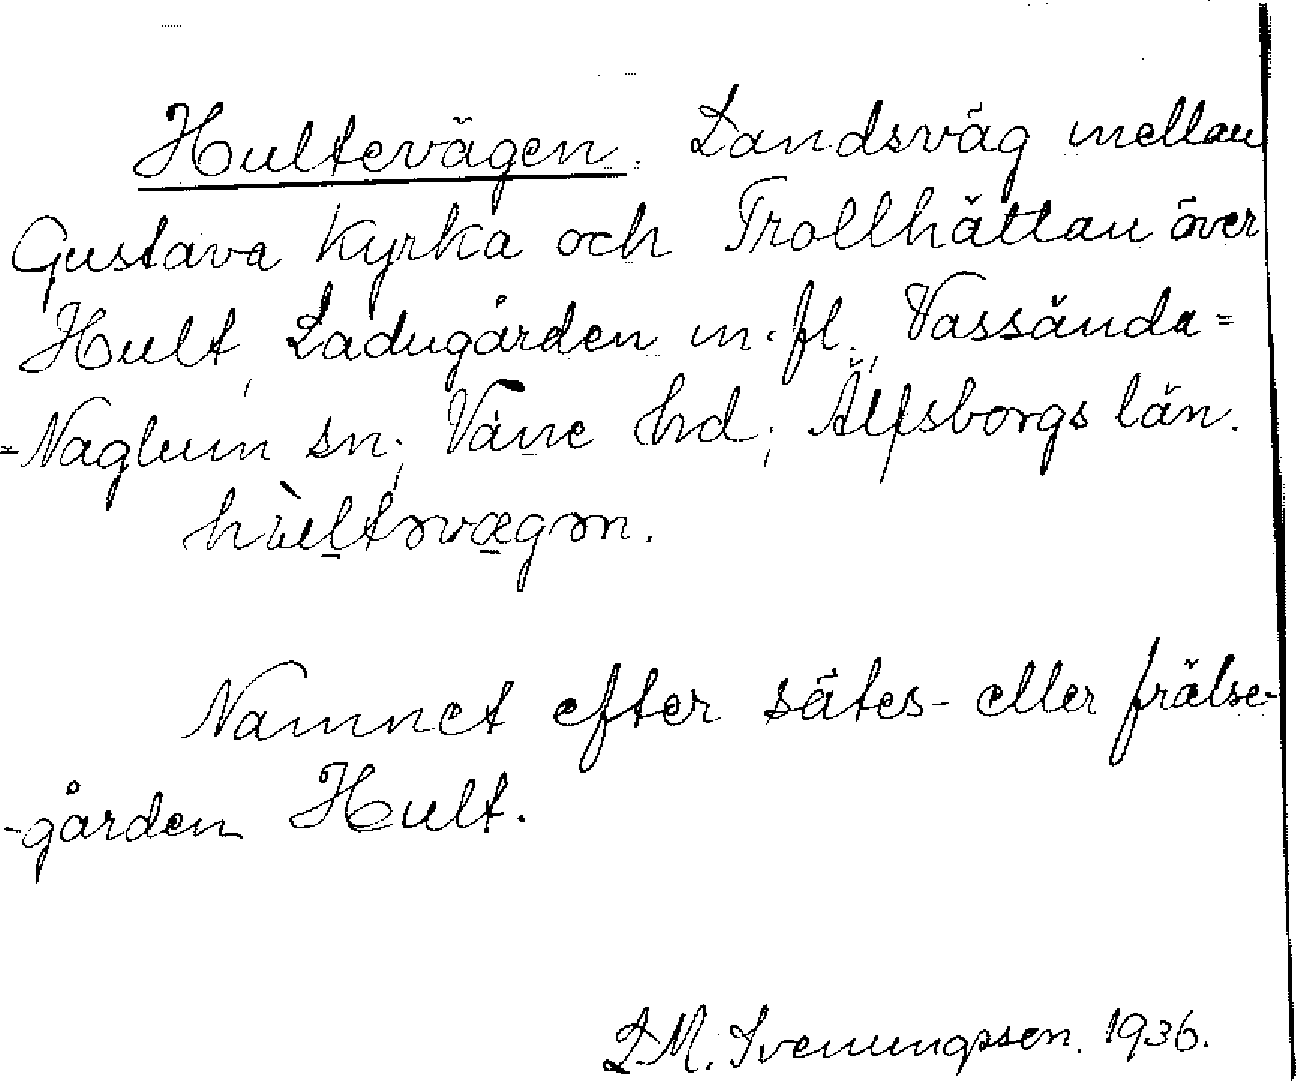 Hultevägen. Landsväg mellan
Gustava Kyrka och Trollhättan över
Hult, Ladugården m. fl., Vassända=
=Naglum sn; Väne hd; Älfsborgs län.
hùltəvægən.
Namnet efter sätes- eller frälse-
-gården Hult.
L.M. Svenungsson. 1936.